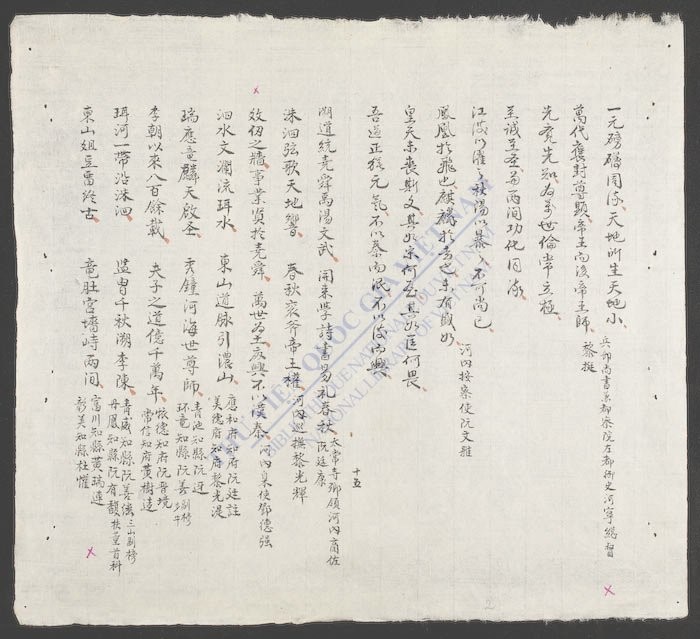 一元磅礴同流天地所生天地小
兵部尚書兼都察院左都御史河寧總督
萬代褒封尊顯帝王而後帝王師
黎挺
先覺先知為萬世倫常立極
至誠至圣與兩間功化同流
江漢以濯之秋陽以暴之不可尚已
河內按察使阮文雅
鳳凰於飛也麒麟於走也未有盛如
皇天未喪斯文其如宋何其如匡何畏
吾道正猶元氣不以秦而泯不以漢而興
十五
溯道統堯舜禹湯文武 開來學詩書易礼春秋
太常寺卿領河內商佐
阮廷廉
洙泗弦歌天地響 春秋袞斧帝王權 河內巡撫黎光輝
仞之牆事業賢於堯舜 萬世為土興不以漢秦 河內臬使鄧德强
泗水文瀾流珥水 東山道脉引濃山
應和府知府阮廷註
美德府知府黎光湜
瑞應竜麟天啟圣 秀鐘河海世尊師
青池知縣阮迓
环竜知縣阮善
李朝以來八百餘載 夫子之道億千萬年
知府阮登境
常信知府黃樹造
珥河一帶沿洙泗 胄千秋溯李陳
青威知縣阮善强
丹鳳知縣阮有馥
東山俎豆畱終古 竜肚宮墻峙兩間
富川知縣黃瑞達
彰美知縣杜懽
THƯ VIỆN QUỐC GIA VIỆT NAM
BIBLIOTHEQUE NATIONALE DU VIETNAM
NATIONAL LIBRARY OF VIETNAM